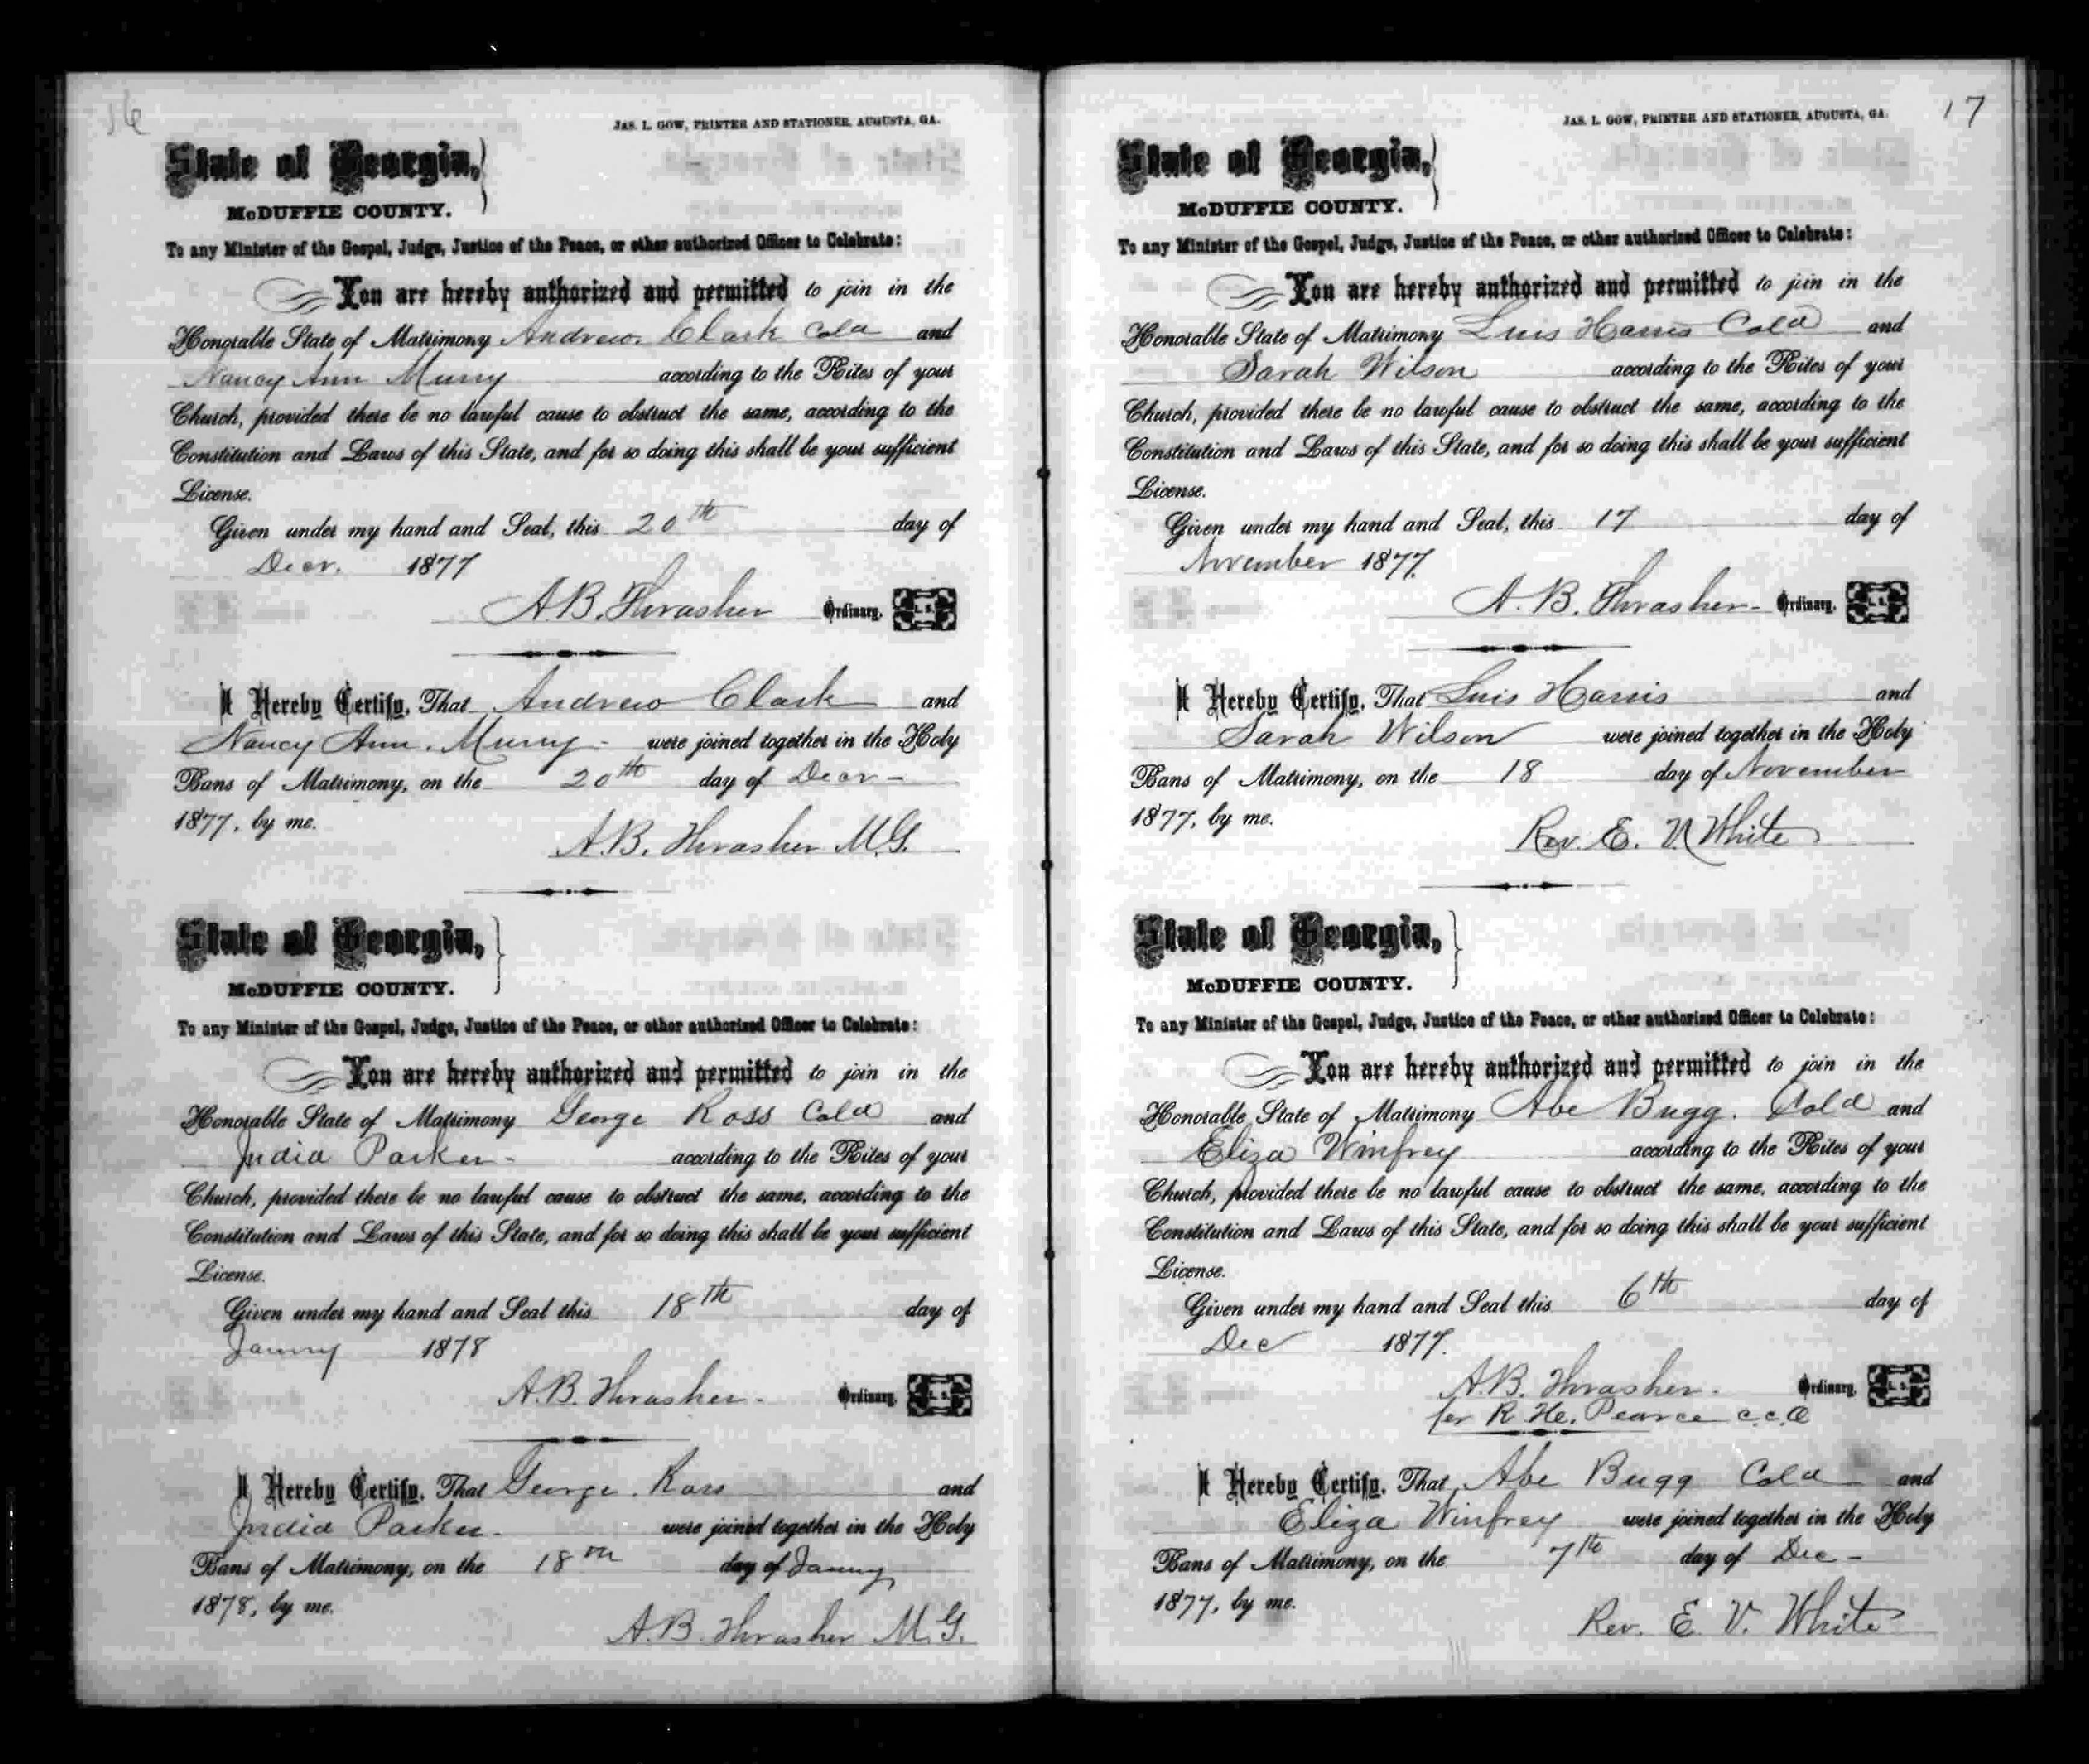 16
JAS. L. GOW, PRINTER AND STATIONER, AUGUSTA, GA.
State of Georgia,
McDUFFIE COUNTY.
To any Minister of the Gospel, Judge, Justice of the Peace, or other authorized Officer to Celebrate:
You are hereby authorized and permitted to join in the
Honorable State of Matrimony Andrew Clark Cold and
Nancy Ann Murry according to the Rites of your
Church, provided there be no lawful cause to obstruct the same, according to the
Constitution and Laws of this State, and for so doing this shall be your sufficient
License.
Given under my hand and Seal, this 20th day of
Decr. 1877
A.B. Thrasher Ordinary. L. S.
I Hereby Certify, That Andrew Clark and
Nancy Ann Murry were joined together in the Holy
Bans of Matrimony, on the 20th day of Decr
1877, by me.
A.B. Thrasher M.G.
State of Georgia,
McDUFFIE COUNTY.
To any Minister of the Gospel, Judge, Justice of the Peace, or other authorized Officer to Celebrate:
You are hereby authorized and permitted to join in the
Honorable State of Matrimony George Ross Cold and
India Parker according to the Rites of your
Church, provided there be no lawful cause to obstruct the same, according to the
Constitution and Laws of this State, and for so doing this shall be your sufficient
License.
Given under my hand and Seal this 18th day of
Janry 1878
A.B. Thrasher Ordinary. L. S.
I Hereby Certify, That George Ross and
India Parker were joined together in the Holy
Bans of Matrimony, on the 18th day of Janry
1878, by me.
A.B. Thrasher M.G.
17
JAS. L. GOW, PRINTER AND STATIONER, AUGUSTA, GA.
State of Georgia,
McDUFFIE COUNTY.
To any Minister of the Gospel, Judge, Justice of the Peace, or other authorized Officer to Celebrate:
You are hereby authorized and permitted to join in the
Honorable State of Matrimony Luis Harris Cold and
Sarah Wilson according to the Rites of your
Church, provided there be no lawful cause to obstruct the same, according to the
Constitution and Laws of this State, and for so doing this shall be your sufficient
License.
Given under my hand and Seal, this 17 day of
November 1877.
A. B. Thrasher Ordinary. L. S.
I Hereby Certify, That Luis Harris and
Sarah Wilson were joined together in the Holy
Bans of Matrimony, on the 18 day of November
1877, by me.
Rev. E. V. White
State of Georgia,
McDUFFIE COUNTY.
To any Minister of the Gospel, Judge, Justice of the Peace, or other authorized Officer to Celebrate:
You are hereby authorized and permitted to join in the
Honorable State of Matrimony Abe Bugg. Cold and
Eliza Winfrey according to the Rites of your
Church, provided there be no lawful cause to obstruct the same, according to the
Constitution and Laws of this State, and for so doing this shall be your sufficient
License.
Given under my hand and Seal this 6th day of
Dec 1877.
A.B. Thrasher. Ordinary. L. S.
per R. H. Pearce c.c.O
I Hereby Certify, That Abe Bugg Cold and
Eliza Winfrey were joined together in the Holy
Bans of Matrimony, on the 7th day of Dec
1877, by me.
Rev. E. V. White